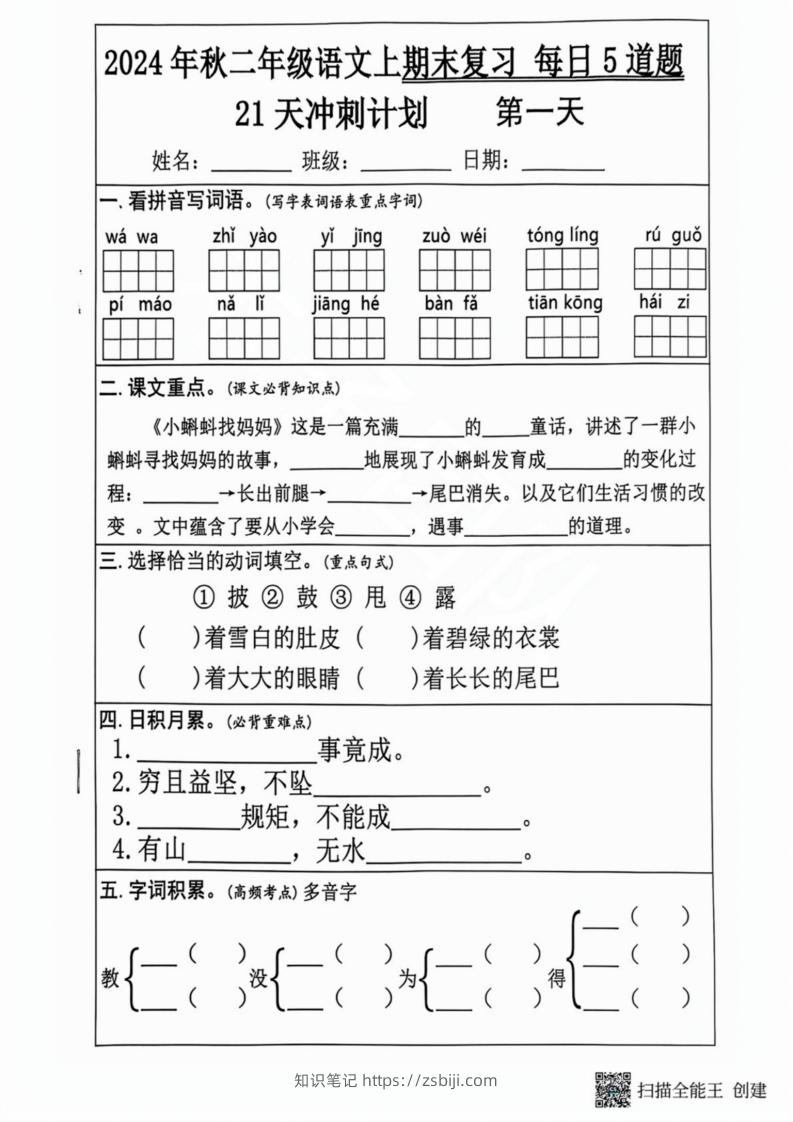 2024年秋二年级语文上期末复习 每日5道题
21天冲刺计划 第一天
姓名：______ 班级：______ 日期：______
一.看拼音写词语。(写字表词语表重点字词)
wá wa zhǐ yào yǐ jīng zuò wéi tóng líng rú guǒ
pí máo nǎ lǐ jiāng hé bàn fǎ tiān kōng hái zi
二.课文重点。(课文必背知识点)
《小蝌蚪找妈妈》这是一篇充满______的____童话，讲述了一群小
蝌蚪寻找妈妈的故事，______地展现了小蝌蚪发育成______的变化过
程：______→长出前腿→______→尾巴消失。以及它们生活习惯的改
变 。文中蕴含了要从小学会______，遇事________的道理。
三.选择恰当的动词填空。(重点句式)
① 披 ② 鼓 ③ 甩 ④ 露
（ ）着雪白的肚皮（ ）着碧绿的衣裳
（ ）着大大的眼睛（ ）着长长的尾巴
四.日积月累。(必背重难点)
1.____________事竟成。
2.穷且益坚，不坠____________。
3.________规矩，不能成__________。
4.有山________，无水____________。
五.字词积累。(高频考点)多音字
____（ ）
____（ ） ____（ ） ____（ ） ____（ ）
教 没 为 得
____（ ） ____（ ） ____（ ） ____（ ）
知识笔记 https://zsbiji.com
扫描全能王 创建